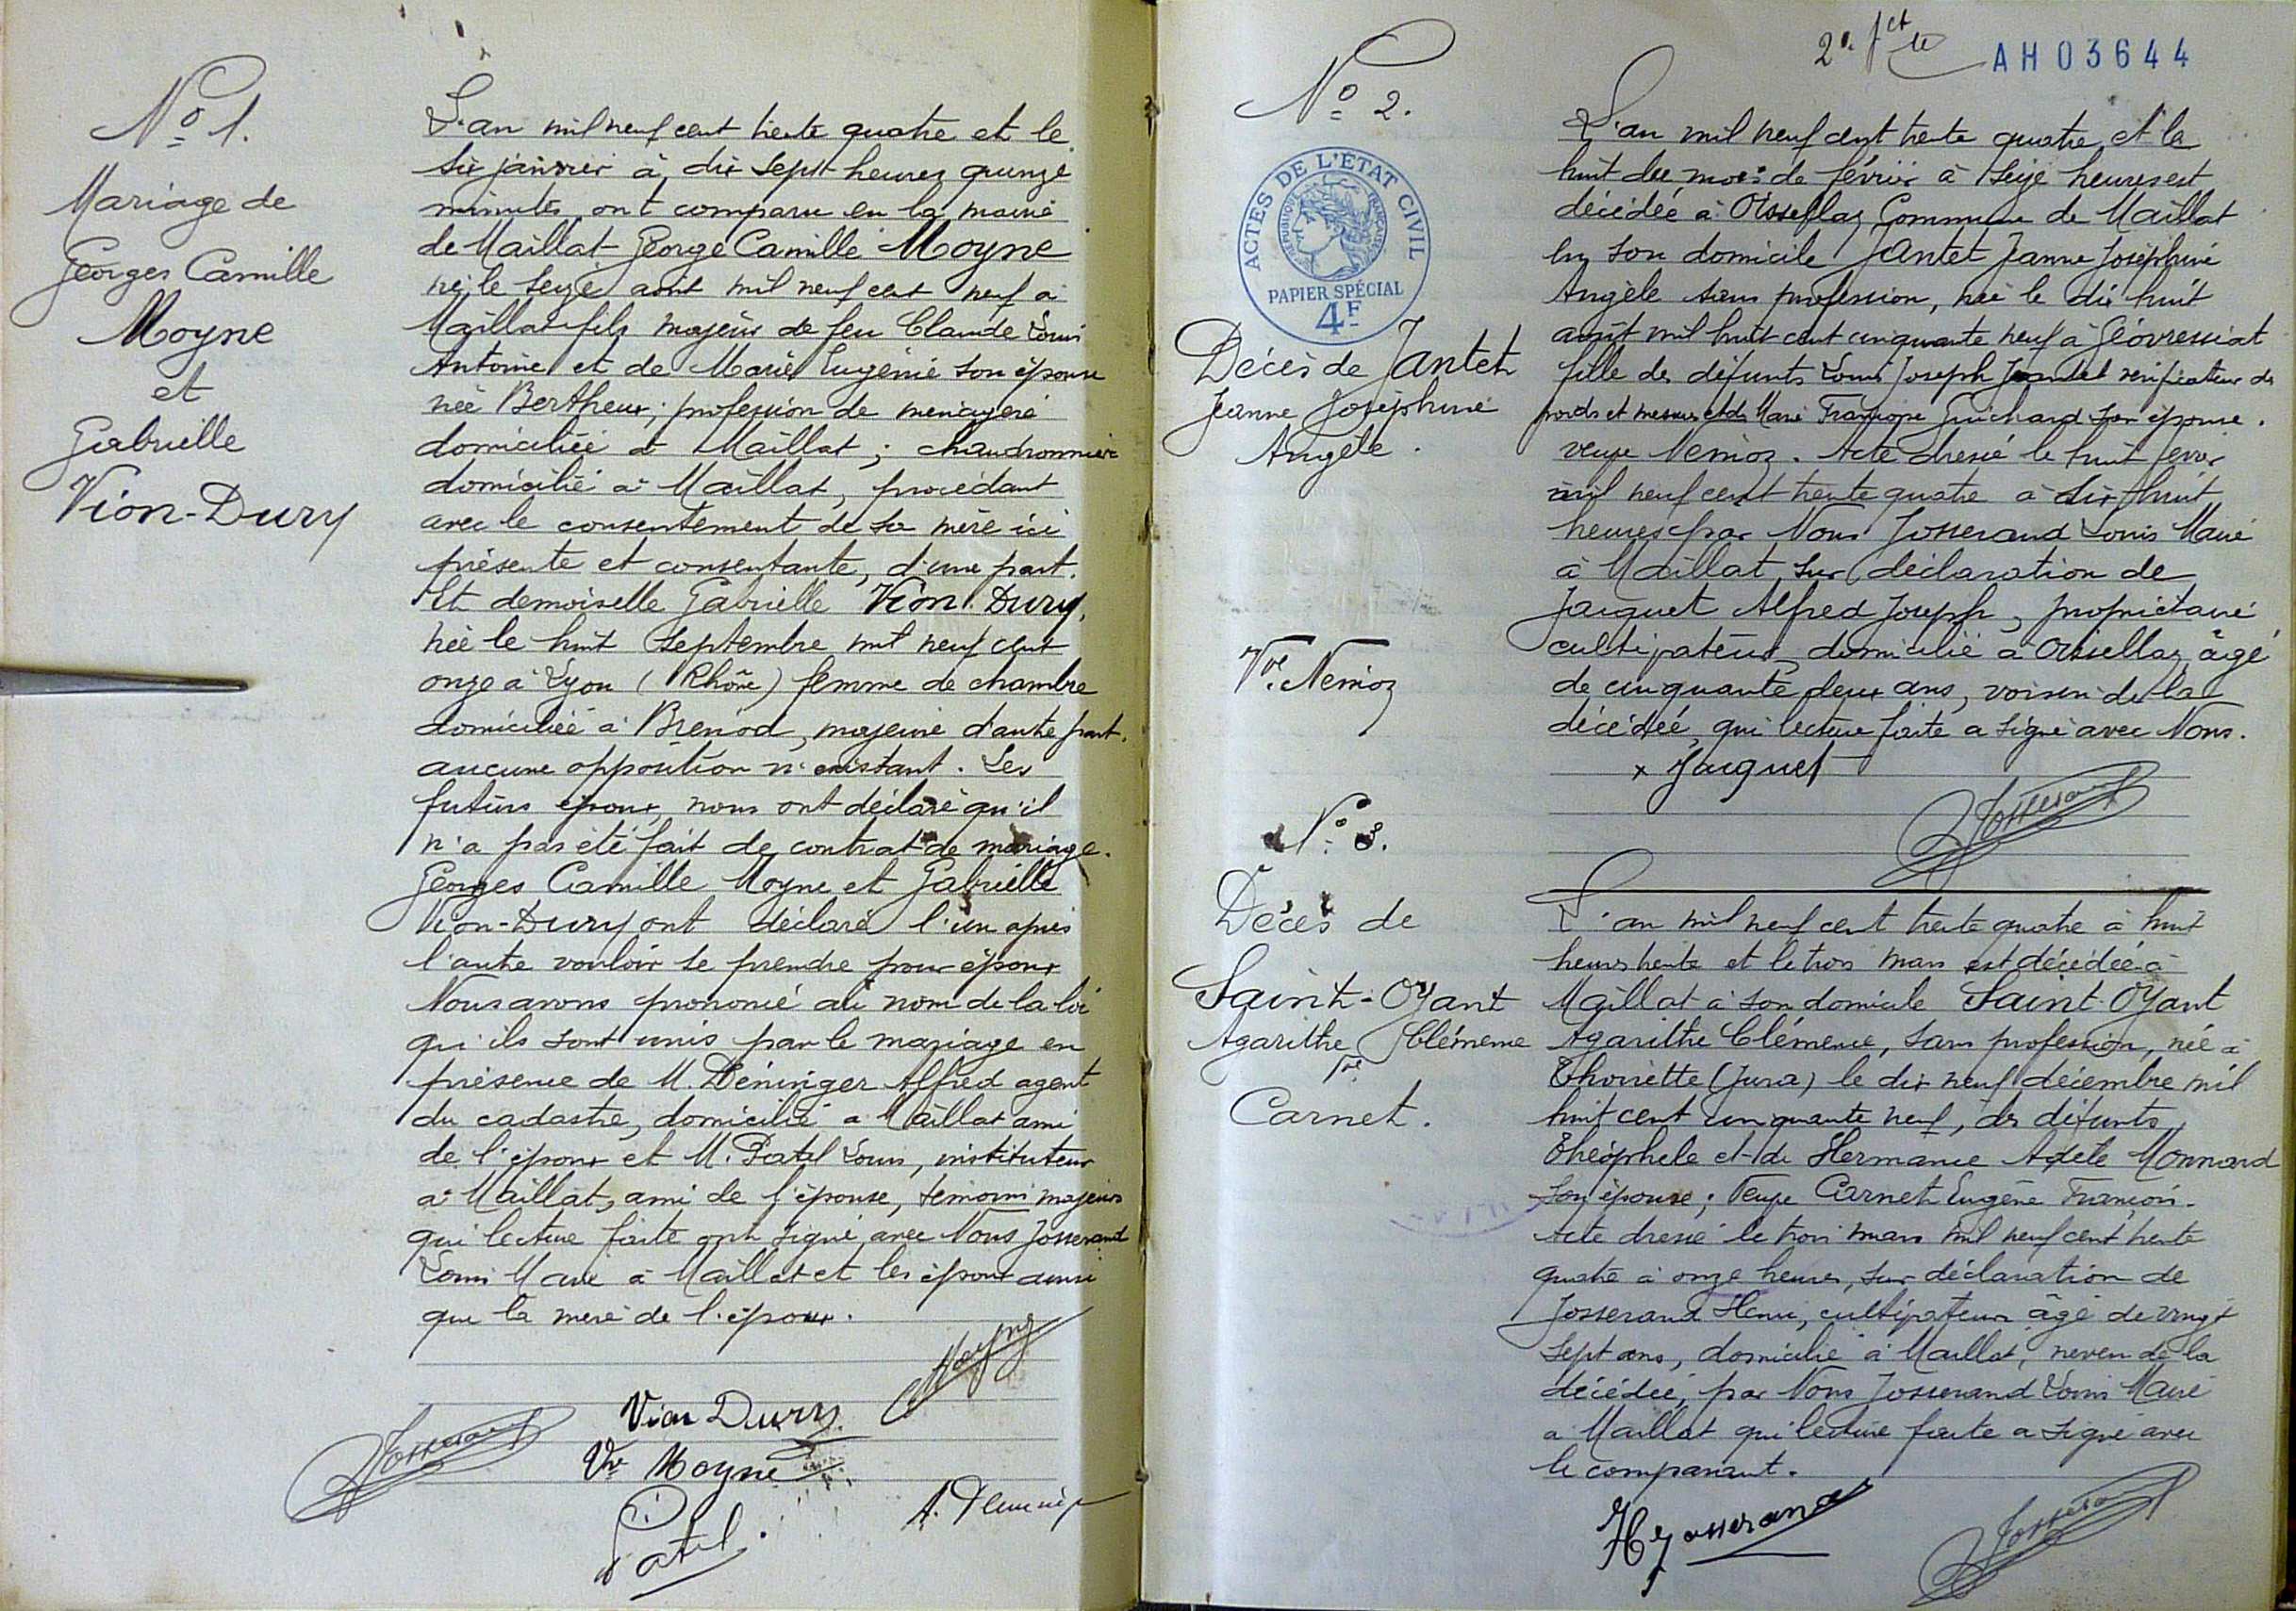 Nº 1.
Mariage de
Georges Camille
Moyne
et
Gabrielle
Vion-Dury
L'an mil neuf cent trente quatre et le
six janvier à dix sept heures quinze
minutes ont comparu en la mairie
de Maillat George Camille Moyne
né le seize aout mil neuf cent neuf à
Maillat fils majeur de feu Claude Louis
Antoine et de Marie Eugénie son épouse
née Bertheux; profession de ménagère
domiciliée à Maillat; chaudronnier
domicilié à Maillat, procédant
avec le consentement de sa mère ici
présente et consentante, d'une part.
Et demoiselle Gabrielle Vion-Dury,
née le huit septembre mil neuf cent
onze à Lyon (Rhône) femme de chambre
domiciliée à Brénod, majeure d'autre part.
aucune opposition n'existant. Les
futurs époux, nous ont déclaré qu'il
n'a pas été fait de contrat de mariage.
Georges Camille Moyne et Gabrielle
Vion-Dury ont déclaré l'un après
l'autre vouloir se prendre pour époux
Nous avons prononcé au nom de la loi
qu'ils sont unis par le mariage en
présence de M. Déninger Alfred agent
du cadastre, domicilié à Maillat ami
de l'époux et M. Patel Louis, instituteur
à Maillat, ami de l'épouse, témoins majeurs
qui lecture faite ont signé avec Nous Josserand
Louis Maire à Maillat et les époux ainsi
que la mère de l'époux.
Moyne
Vion Dury
Josserand
Vve Moyne
A. Deninger
Patel
2e fet
AH03644
Nº 2.
ACTES DE L'ÉTAT CIVIL
RÉPUBLIQUE FRANÇAISE
PAPIER SPÉCIAL
4F
Décès de Jantet
Jeanne Joséphine
Angèle.
Vve Nemoz
L'an mil neuf cent trente quatre et le
huit du mois de février à seize heures est
décédée à Oissellaz Commune de Maillat
en son domicile Jantet Jeanne Joséphine
Angèle sans profession, née le dix huit
août mil huit cent cinquante neuf à Géovressiat
fille des défunts Louis Joseph Jantet vérificateur des
poids et mesures et de Marie Françoise Guichard son épouse.
veuve Nemoz. Acte dressé le huit février
mil neuf cent trente quatre à dix huit
heures par Nous Josserand Louis Maire
à Maillat sur déclaration de
Jacquet Alfred Joseph, propriétaire
cultivateur, domicilié à Oissellaz âgé
de cinquante deux ans, voisin de la
décédée, qui lecture faite a signé avec Nous.
x Jacquet
Josserand
Nº 3.
Décès de
Saint-Oyant
Agarithe Clémence
Vve
Carnet.
L'an mil neuf cent trente quatre à huit
heures trente et le trois mars est décédée à
Maillat à son domicile Saint-Oyant
Agarithe Clémence, sans profession, née à
Thoirette (Jura) le dix neuf décembre mil
huit cent cinquante neuf, des défunts
Théophile et de Hermance Adèle Monnard
son épouse; Veuve Carnet Eugène François.
Acte dressé le trois mars mil neuf cent trente
quatre à onze heures, sur déclaration de
Josserand Henri, cultivateur âgé de vingt
sept ans, domicilié à Maillat, neveu de la
décédée, par Nous Josserand Louis Maire
à Maillat qui lecture faite a signé avec
le comparant.
H Josserand
Josserand